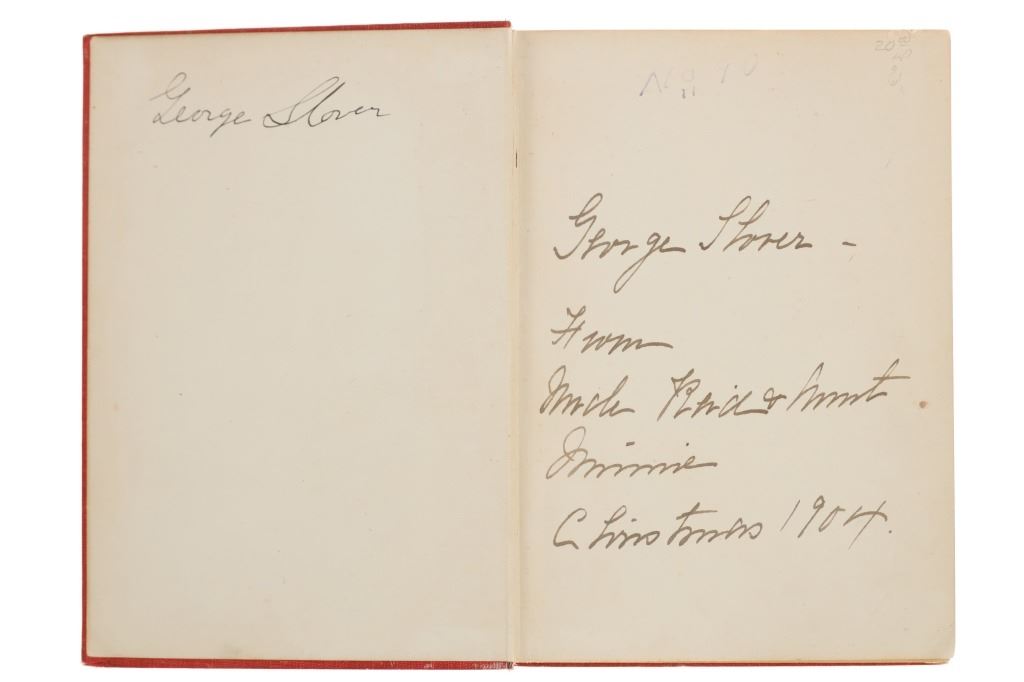 George Slover
No 10
George Slover -
From
Uncle Reid & Aunt
Minnie
Christmas 1904.